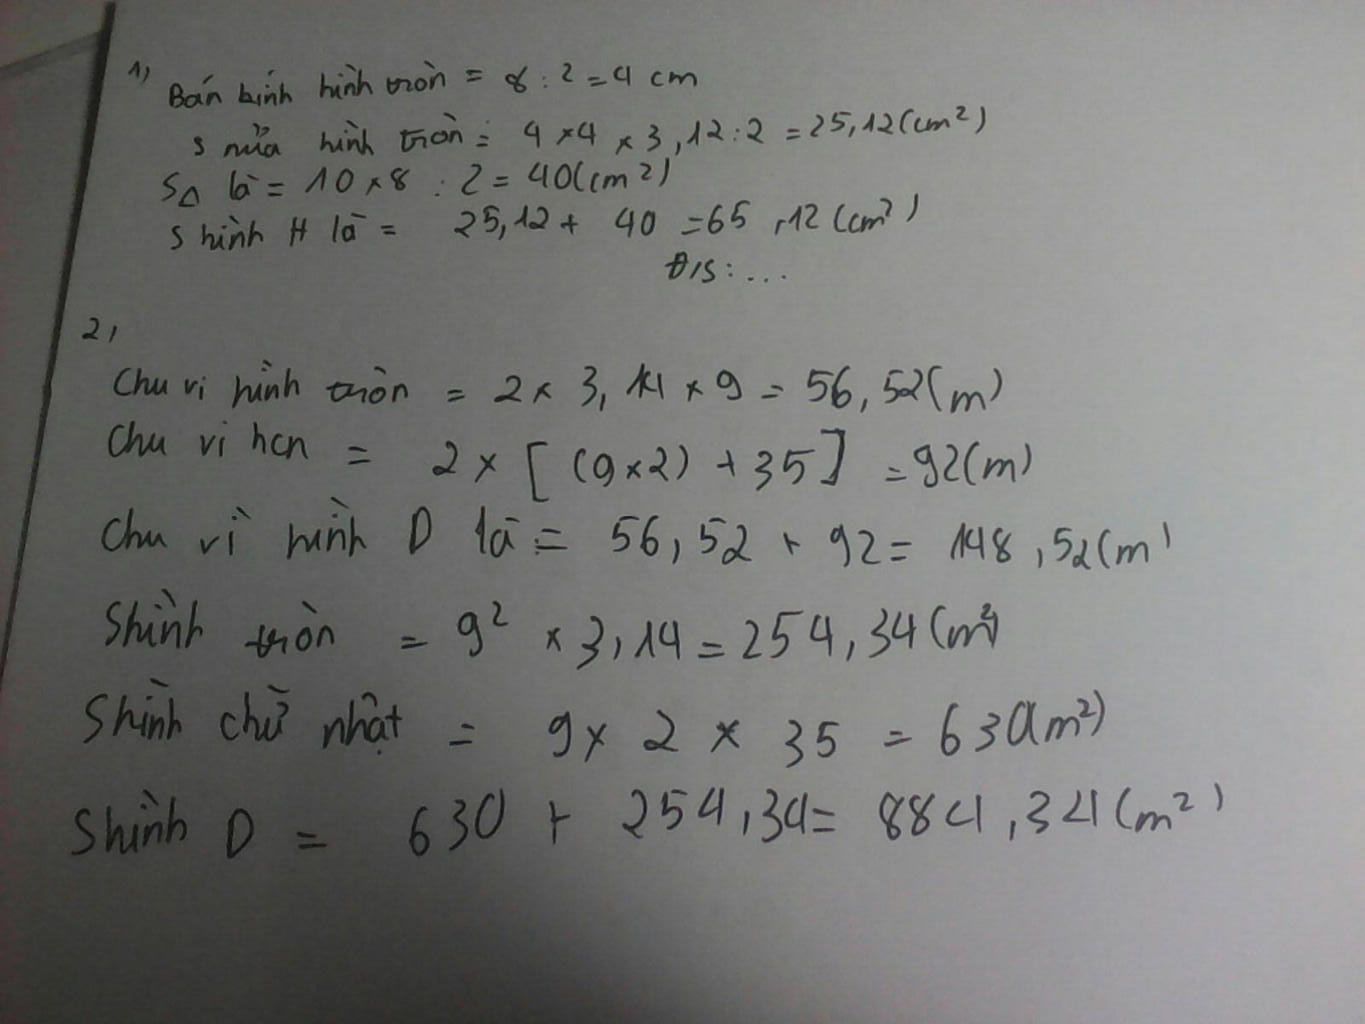 1,
Bán kính hình tròn = 8 : 2 = 4 cm
S nửa hình tròn = 4 x 4 x 3,12 : 2 = 25,12 (cm²)
SΔ là = 10 x 8 : 2 = 40 (cm²)
S hình H là = 25,12 + 40 = 65,12 (cm²)
Đ/S: ...
2,
Chu vi hình tròn = 2 x 3,14 x 9 = 56,52 (m)
Chu vi hcn = 2 x [ (9 x 2) + 35 ] = 92 (m)
Chu vi hình D là = 56,52 + 92 = 148,52 (m)
S hình tròn = 9² x 3,14 = 254,34 (m²)
S hình chữ nhật = 9 x 2 x 35 = 630 (m²)
S hình D = 630 + 254,34 = 884,34 (m²)